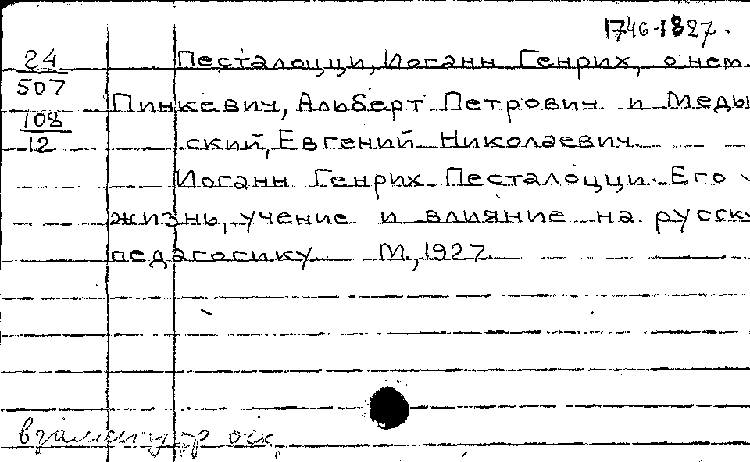 1746-1827.
24 Песталоцци, Иоганн Генрих, о нем.
507
Пинкевич, Альберт Петрович и Меды
108
12 ский, Евгений Николаевич
Иоганн Генрих Песталоцци. Его
жизнь, учение и влияние на русску
педагогику М., 1927